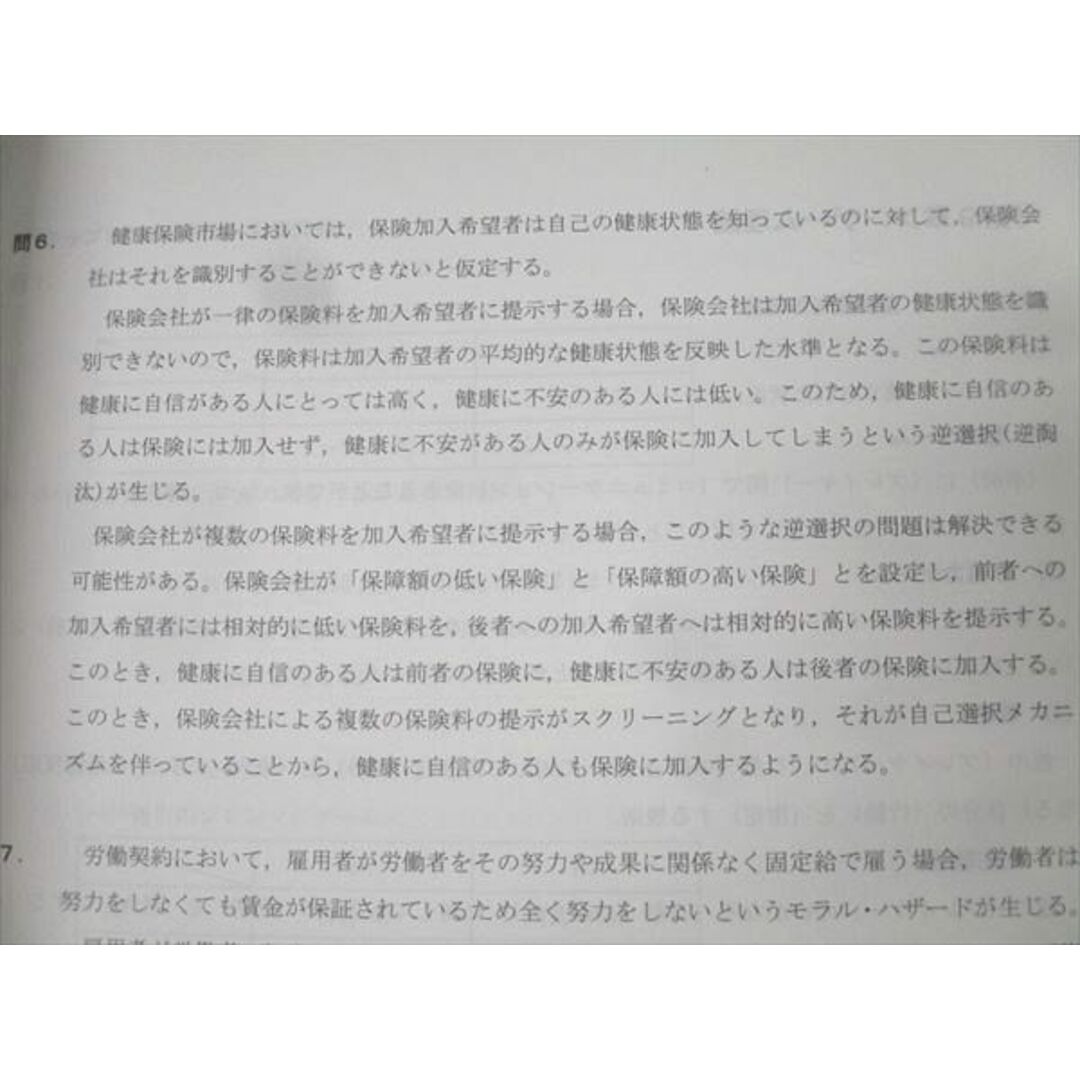 問6. 健康保険市場においては，保険加入希望者は自己の健康状態を知っているのに対して，保険会
社はそれを識別することができないと仮定する。
保険会社が一律の保険料を加入希望者に提示する場合，保険会社は加入希望者の健康状態を識
別できないので，保険料は加入希望者の平均的な健康状態を反映した水準となる。この保険料は
健康に自信がある人にとっては高く，健康に不安のある人には低い。このため，健康に自信のあ
る人は保険には加入せず，健康に不安がある人のみが保険に加入してしまうという逆選択(逆淘
汰)が生じる。
保険会社が複数の保険料を加入希望者に提示する場合，このような逆選択の問題は解決できる
可能性がある。保険会社が「保障額の低い保険」と「保障額の高い保険」とを設定し，前者への
加入希望者には相対的に低い保険料を，後者への加入希望者へは相対的に高い保険料を提示する。
このとき，健康に自信のある人は前者の保険に，健康に不安のある人は後者の保険に加入する。
このとき，保険会社による複数の保険料の提示がスクリーニングとなり，それが自己選択メカニ
ズムを伴っていることから，健康に自信のある人も保険に加入するようになる。
7. 労働契約において，雇用者が労働者をその努力や成果に関係なく固定給で雇う場合，労働者は
努力をしなくても賃金が保証されているため全く努力をしないというモラル・ハザードが生じる。